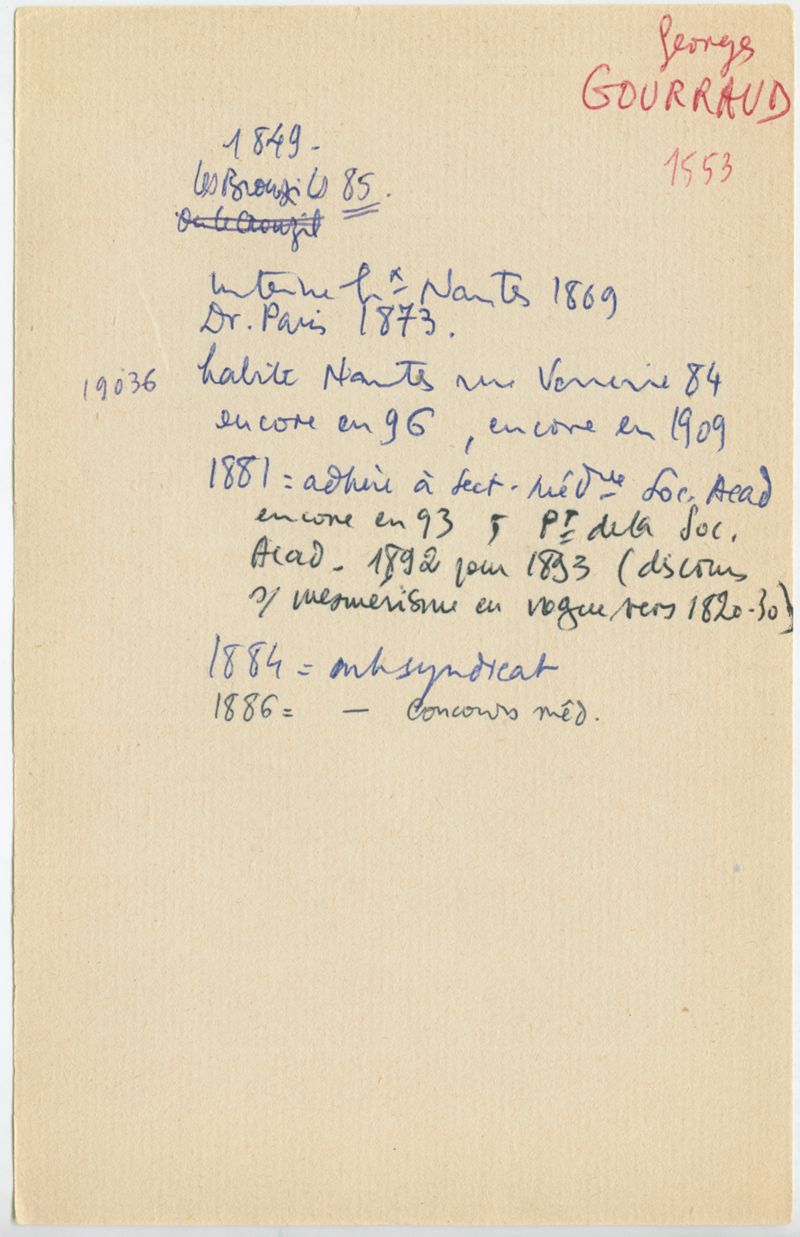 Georges
GOURRAUD
1553
1849 -
les Brouzils 85.
ou le Crouzil
interne hx Nantes 1869
Dr. Paris 1873.
19036 habite Nantes rue Verrerie 84
encore en 96, encore en 1909
1881 = adhère à sect. médle Soc. Acad
encore en 93 ; Pt de la Soc.
Acad - 1892 pour 1893 (discours
s/ mesmérisme en vogue vers 1820-30)
1884 = syndicat
1886 = — Concours méd.